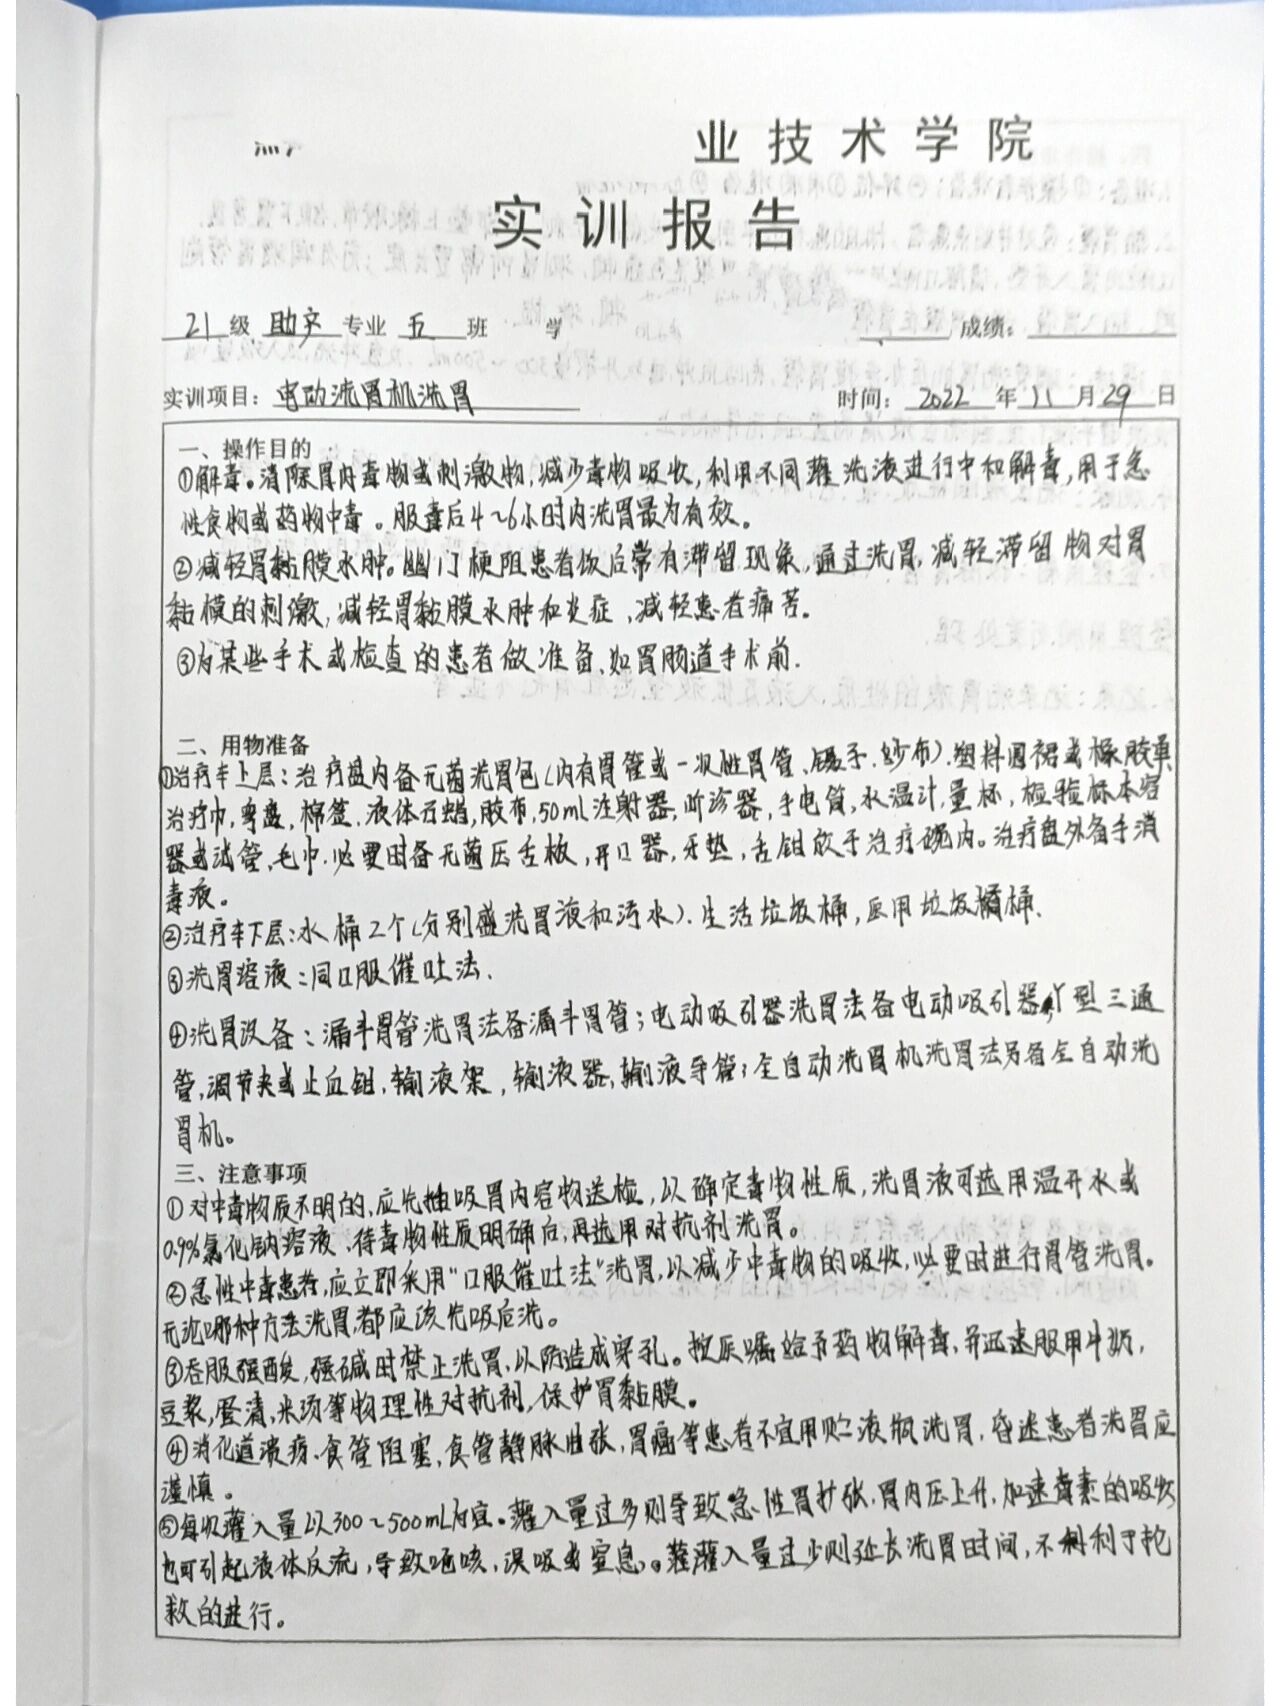 业技术学院
实训报告
21级 助产 专业 五 班 学 成绩：
实训项目：电动洗胃机洗胃 时间：2022 年 11 月 29 日
一、操作目的
①解毒。清除胃内毒物或刺激物，减少毒物吸收，利用不同灌洗液进行中和解毒，用于急
性食物或药物中毒。服毒后4~6小时内洗胃最为有效。
②减轻胃黏膜水肿。幽门梗阻患者饭后常有滞留现象，通过洗胃，减轻滞留物对胃
黏模的刺激，减轻胃黏膜水肿和炎症，减轻患者痛苦。
③为某些手术或检查的患者做准备，如胃肠道手术前.
二、用物准备
①治疗车上层：治疗盘内备无菌洗胃包(内有胃管或一次性胃管、镊子.纱布).塑料围裙或橡胶单
治疗巾，弯盘，棉签，液体石蜡，胶布，50ml注射器，听诊器，手电筒，水温计，量杯，检验标本容
器或试管，毛巾，必要时备无菌压舌板，开口器，牙垫，舌钳放于治疗碗内。治疗盘外备手消
毒液。
②治疗车下层：水桶2个(分别盛洗胃液和污水).生活垃圾桶，医用垃圾桶.
③洗胃溶液：同口服催吐法.
④洗胃设备：漏斗胃管洗胃法备漏斗胃管；电动吸引器洗胃法备电动吸引器，Y型三通
管，调节夹或止血钳，输液架，输液器，输液导管；全自动洗胃机洗胃法另备全自动洗
胃机。
三、注意事项
①对中毒物质不明的，应先抽吸胃内容物送检，以确定毒物性质，洗胃液可选用温开水或
0.9%氯化钠溶液，待毒物性质明确后，再选用对抗剂洗胃。
②急性中毒患者，应立即采用“口服催吐法”洗胃，以减少中毒物的吸收，必要时进行胃管洗胃。
无论哪种方法洗胃，都应该先吸后洗。
③吞服强酸，强碱时禁止洗胃，以防造成穿孔。按医嘱给予药物解毒，并迅速服用牛奶，
豆浆，蛋清，米汤等物理性对抗剂，保护胃黏膜。
④消化道溃疡、食管阻塞，食管静脉曲张，胃癌等患者不宜用贮液瓶洗胃，昏迷患者洗胃应
谨慎。
⑤每次灌入量以300~500mL为宜。灌入量过多则导致急性胃扩张，胃内压上升，加速毒素的吸收
也可引起液体反流，导致呛咳，误吸或窒息。灌入量过少则延长洗胃时间，不利于抢
救的进行。